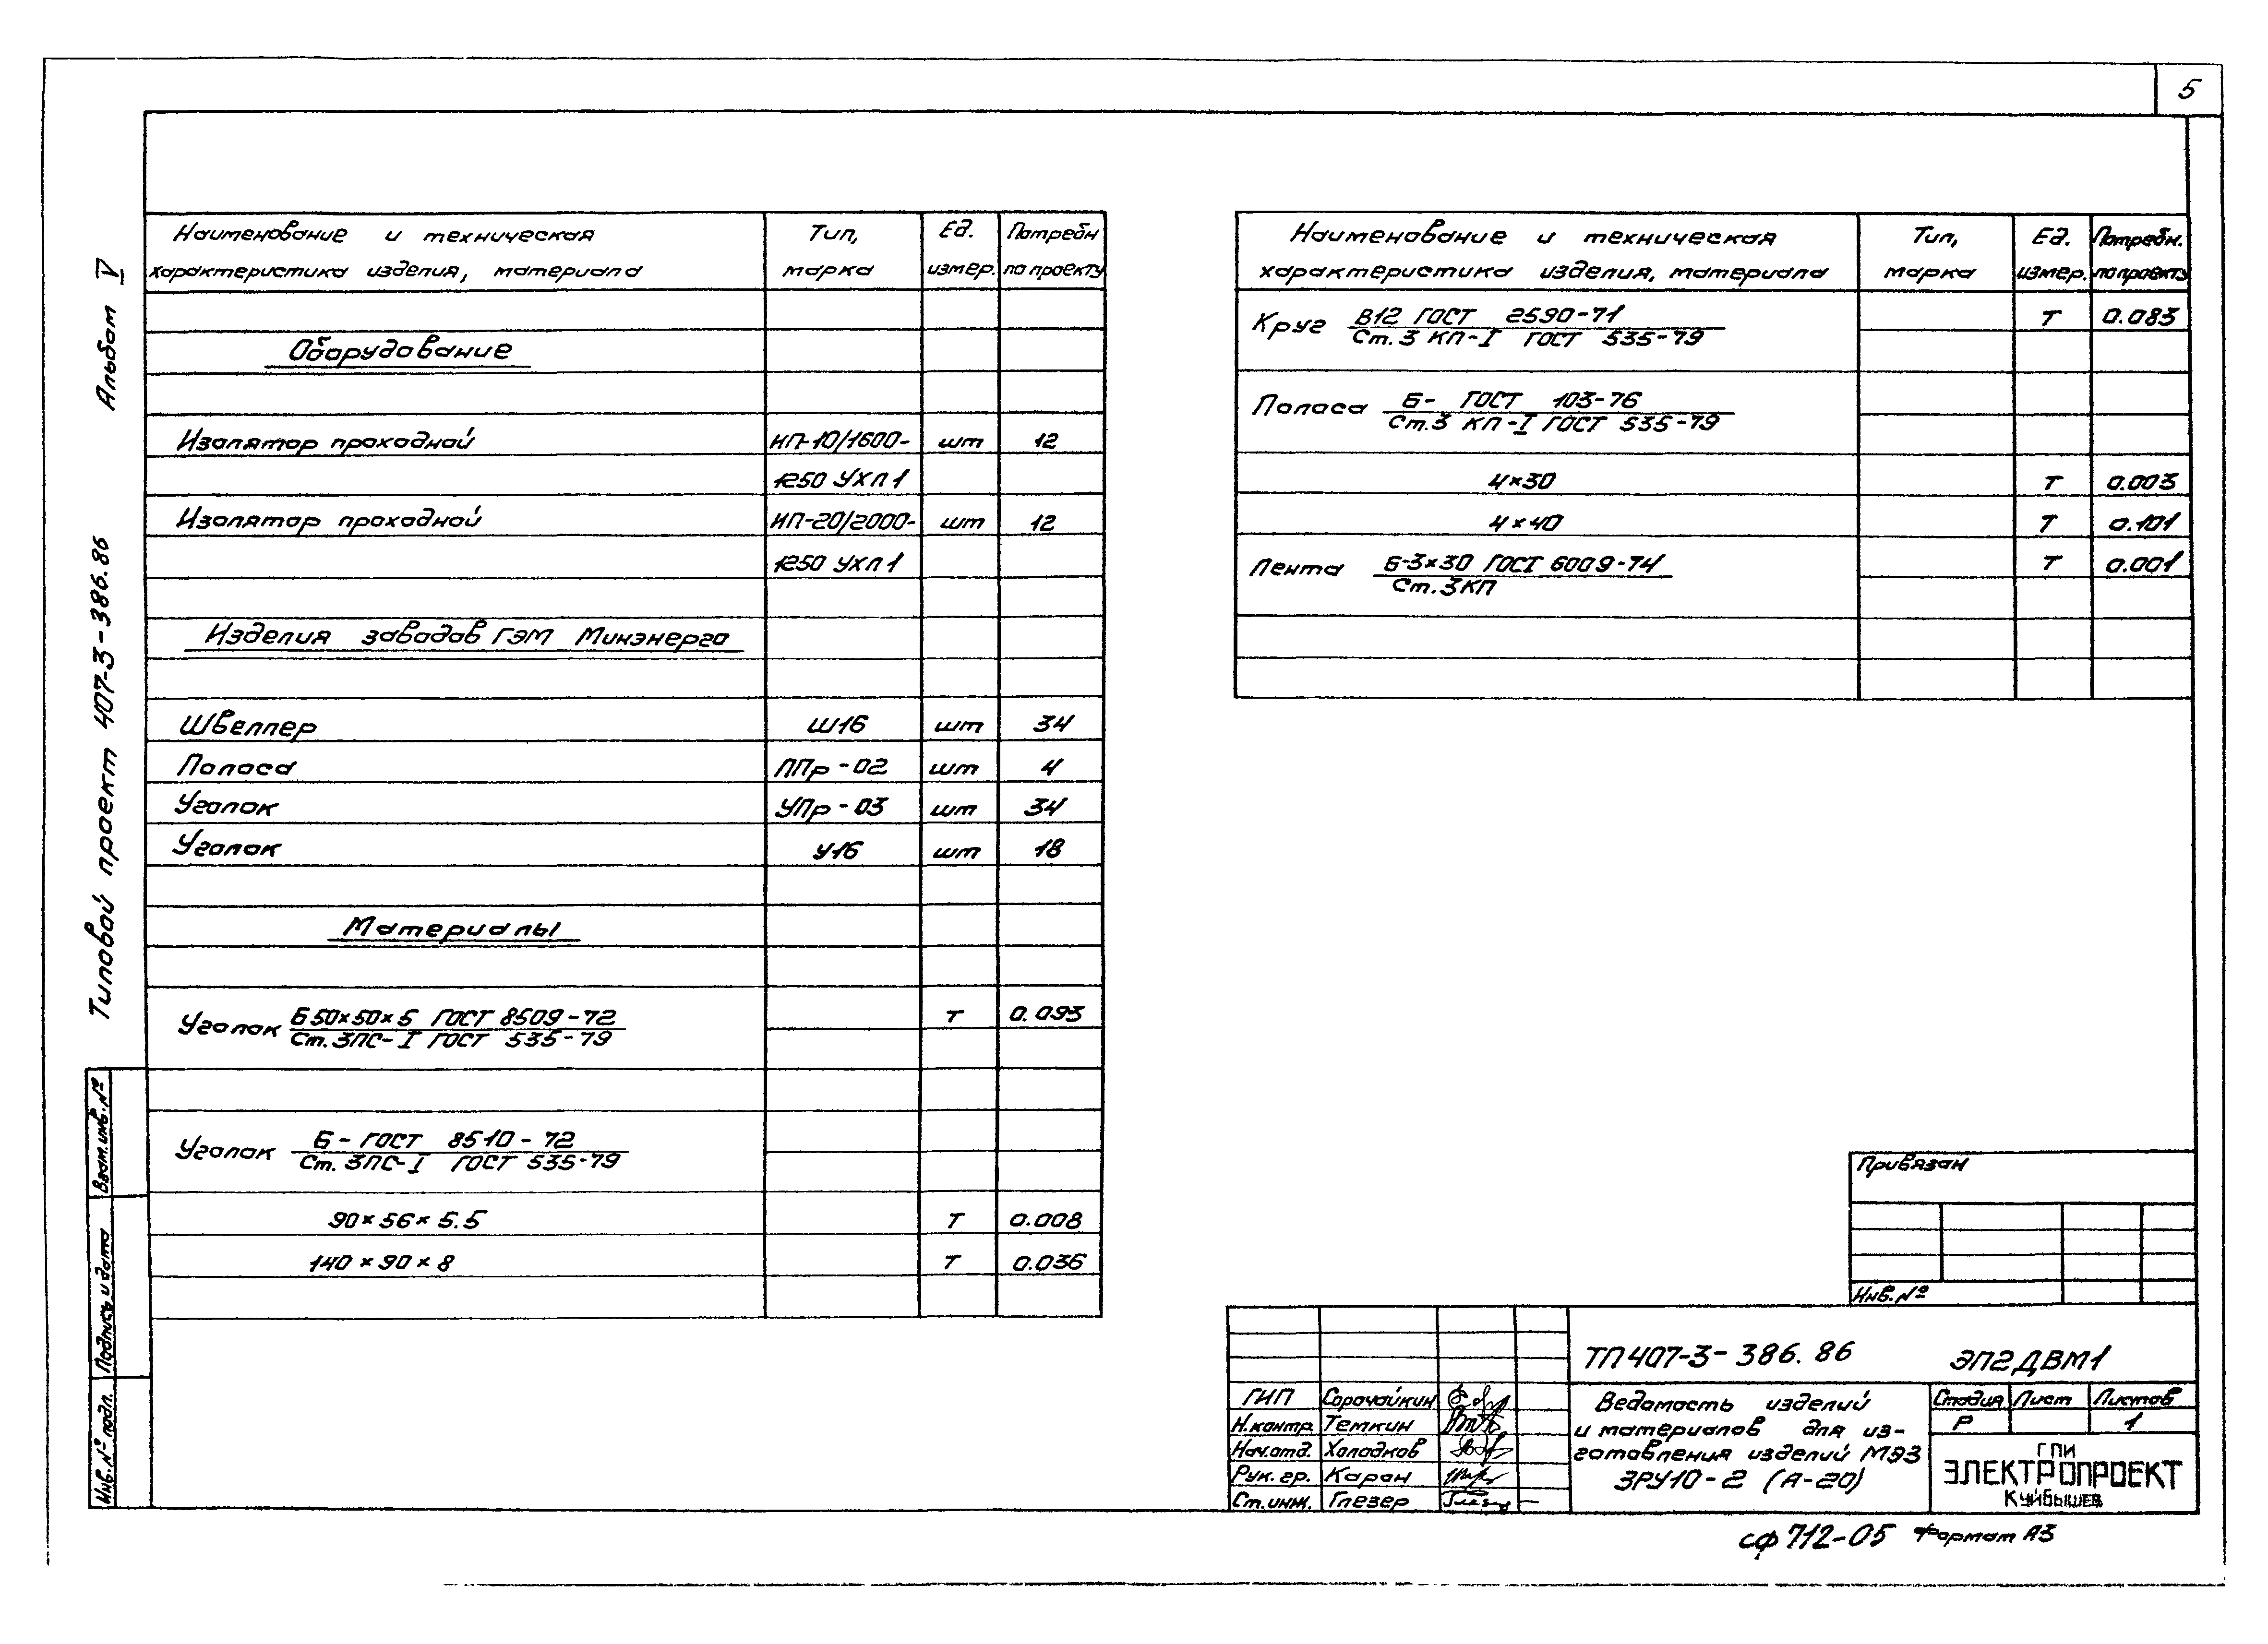 5
Альбом V
Типовой проект 407-3-386.86
Взам.инв.№
Подпись и дата
Инв.№ подл.
Наименование и техническая характеристика изделия, материала
Тип, марка
Ед. измер.
Потребн по проекту
Оборудование
Изолятор проходной ИП-10/1600- шт 12
1250 УХЛ1
Изолятор проходной ИП-20/2000- шт 12
1250 УХЛ1
Изделия заводов ГЭМ Минэнерго
Швеллер Ш16 шт 34
Полоса ППр-02 шт 4
Уголок УПр-03 шт 34
Уголок У16 шт 18
Материалы
Уголок Б50×50×5 ГОСТ 8509-72 т 0.093
Ст.3ПС-I ГОСТ 535-79
Уголок Б- ГОСТ 8510-72
Ст. 3ПС-I ГОСТ 535-79
90×56×5.5 т 0.008
140×90×8 т 0.036
Наименование и техническая характеристика изделия, материала
Тип, марка
Ед. измер.
Потребн. по проекту
Круг В12 ГОСТ 2590-71 т 0.083
Ст.3 КП-I ГОСТ 535-79
Полоса Б- ГОСТ 103-76
Ст.3 КП-I ГОСТ 535-79
4×30 т 0.003
4×40 т 0.101
Лента Б-3×30 ГОСТ 6009-74 т 0.001
Ст.3КП
Привязан
Инв.№
ТП407-3-386.86 ЭП2ДВМ1
ГИП Сорочайкин
Н.контр. Темкин
Нач.отд. Холодков
Рук.гр. Коран
Ст.инж. Глезер
Ведомость изделий
и материалов для из-
готовления изделий МЭЗ
ЗРУ10-2 (А-20)
Стадия Лист Листов
Р 1
ГПИ
ЭЛЕКТРОПРОЕКТ
Куйбышев
сф 712-05 Формат А3